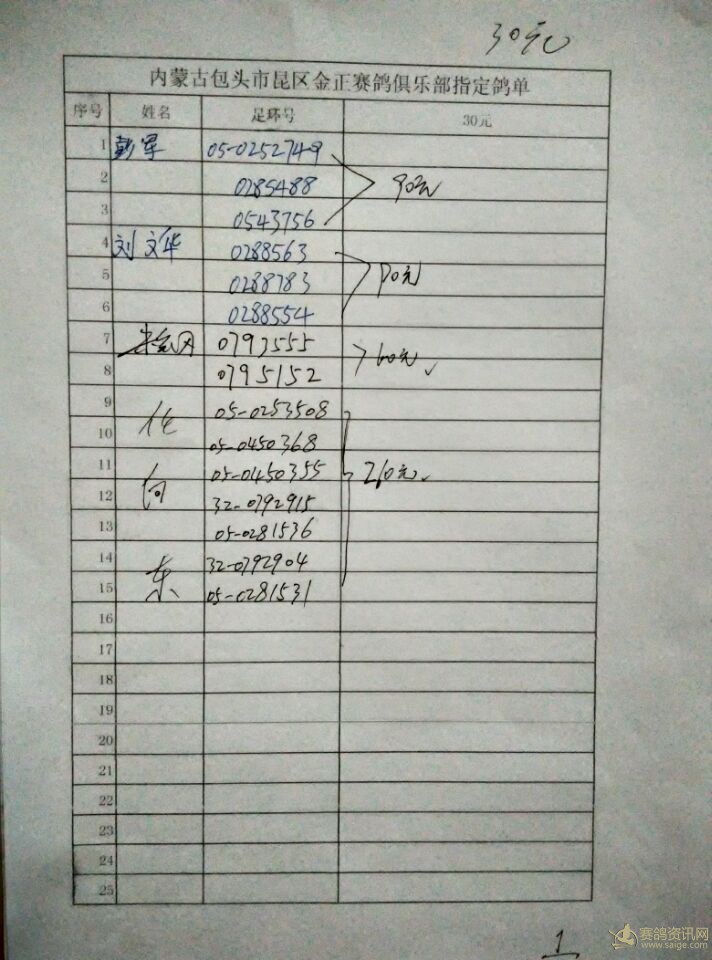 30元
内蒙古包头市昆区金正赛鸽俱乐部指定鸽单
序号 姓名 足环号 30元
1 彭军 05-0252749
2 0285488 90元
3 0543756
4 刘文华 0288563
5 0288783 90元
6 0288554
7 0793555
8 0795152 60元
9 05-0253508
10 任 05-0450368
11 05-0450355 210元
12 向 32-0792915
13 05-0281536
14 32-0792904
15 东 05-0281531
16
17
18
19
20
21
22
23
24
25
1
赛鸽资讯网
www.saige.com